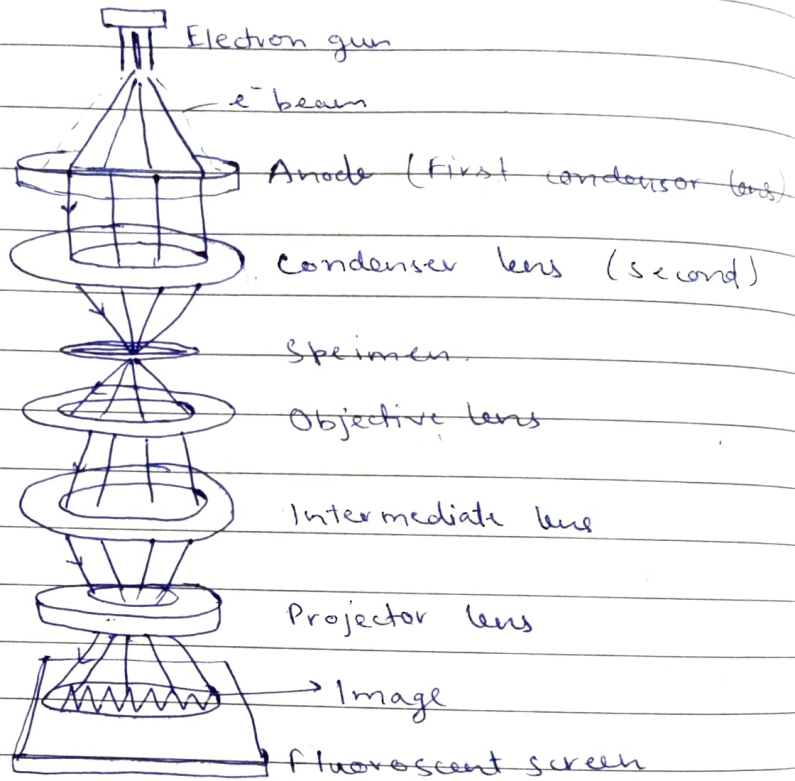 Electron gun
e⁻ beam
Anode (First condensor lens)
Condenser lens (second)
Speimen.
Objective lens
Intermediate lens
Projector lens
Image
fluoroscent screen